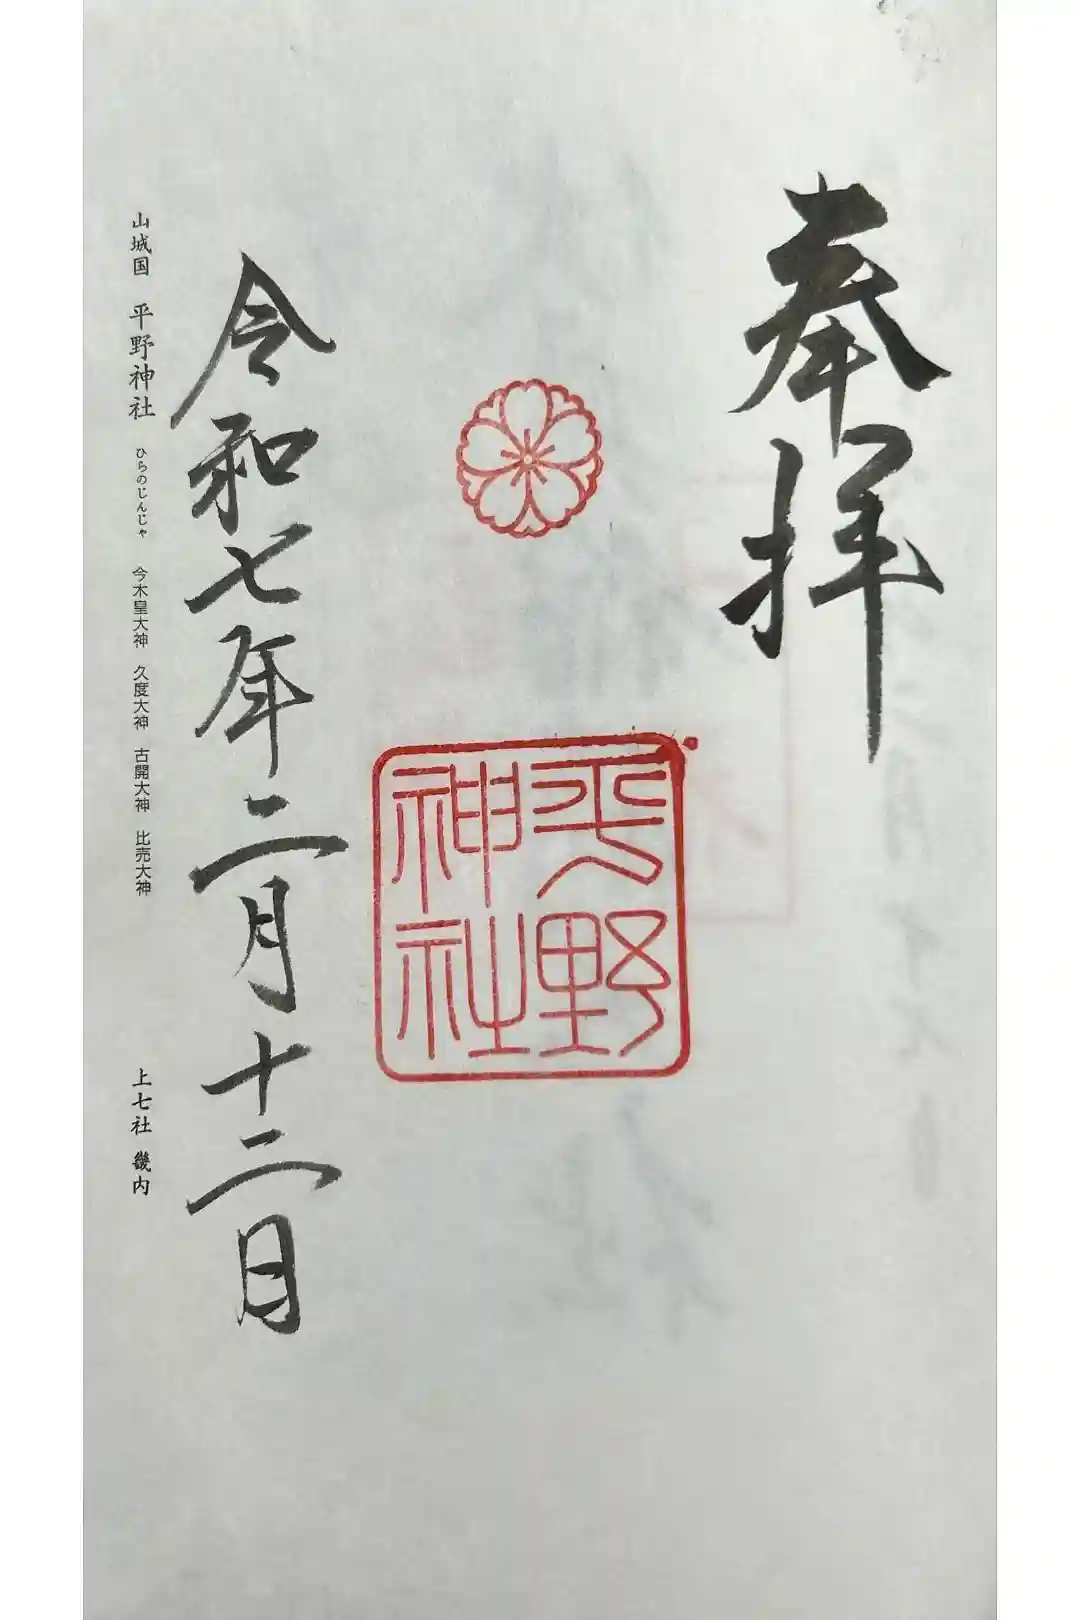 奉拝
平野
神社
令和七年二月十二日
山城国 平野神社 ひらのじんじゃ 今木皇大神 久度大神 古開大神 比売大神 上七社 畿内